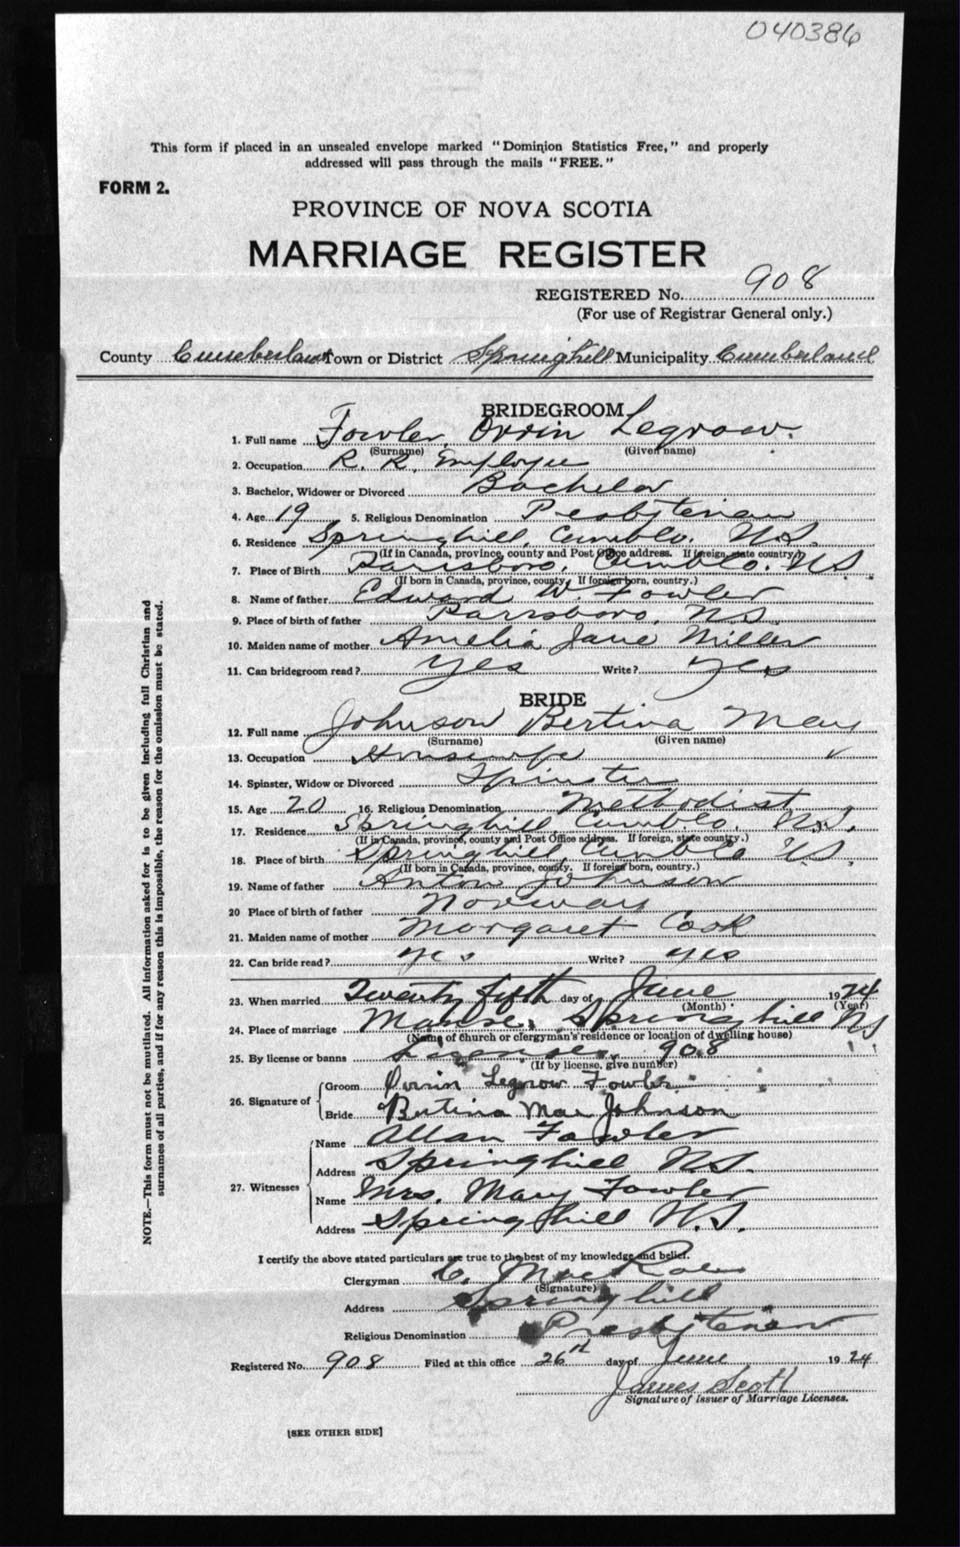 040386
This form if placed in an unsealed envelope marked "Dominion Statistics Free," and properly
addressed will pass through the mails "FREE."
FORM 2.
PROVINCE OF NOVA SCOTIA
MARRIAGE REGISTER
REGISTERED No. 908
(For use of Registrar General only.)
County Cumberland Town or District Springhill Municipality Cumberland
BRIDEGROOM
1. Full name Fowler, Orrin Legrow.
(Surname) (Given name)
2. Occupation R. R. Employee
3. Bachelor, Widower or Divorced Bachelor
4. Age 19 5. Religious Denomination Presbyterian
6. Residence Springhill, Cumb Co. N.S.
(If in Canada, province, county and Post Office address. If foreign, state country.)
7. Place of Birth Parrsboro, Cumb Co. N.S.
(If born in Canada, province, county. If foreign born, country.)
8. Name of father Edward W. Fowler
9. Place of birth of father Parrsboro, N.S.
10. Maiden name of mother Amelia Jane Miller
11. Can bridegroom read? Yes Write? Yes
BRIDE
12. Full name Johnson Bertina May
(Surname) (Given name)
13. Occupation Housewife
14. Spinster, Widow or Divorced Spinster
15. Age 20 16. Religious Denomination Methodist
17. Residence Springhill, Cumb Co, N.S.
(If in Canada, province, county and Post Office address. If foreign, state country.)
18. Place of birth Springhill, Cumb Co N.S.
(If born in Canada, province, county. If foreign born, country.)
19. Name of father Anton Johnson
20 Place of birth of father Norway
21. Maiden name of mother Margaret Cook
22. Can bride read? yes Write? yes
23. When married Twenty fifth day of June 1924
(Month) (Year)
24. Place of marriage Manse, Springhill N.S.
(Name of church or clergyman's residence or location of dwelling house)
25. By license or banns License, 908
(If by license, give number)
26. Signature of Groom Orrin Legrow Fowler
Bride Bertina Mae Johnson
27. Witnesses Name Allan Fowler
Address Springhill N.S.
Name Mrs. Mary Fowler
Address Springhill N.S.
I certify the above stated particulars are true to the best of my knowledge and belief.
Clergyman C. MacRae
(Signature)
Address Springhill
Religious Denomination Presbyterian
Registered No. 908 Filed at this office 26th day of June 1924
James Scott
Signature of Issuer of Marriage Licenses.
[SEE OTHER SIDE]
NOTE.—This form must not be mutilated. All information asked for is to be given including full Christian and
surnames of all parties, and if for any reason this is impossible, the reason for the omission must be stated.